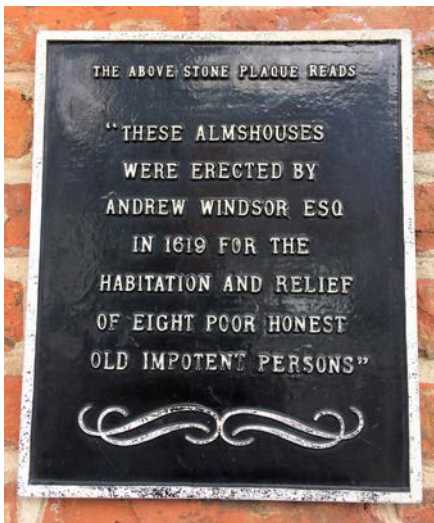 THE ABOVE STONE PLAQUE READS
“THESE ALMSHOUSES
WERE ERECTED BY
ANDREW WINDSOR ESQ
IN 1619 FOR THE
HABITATION AND RELIEF
OF EIGHT POOR HONEST
OLD IMPOTENT PERSONS”